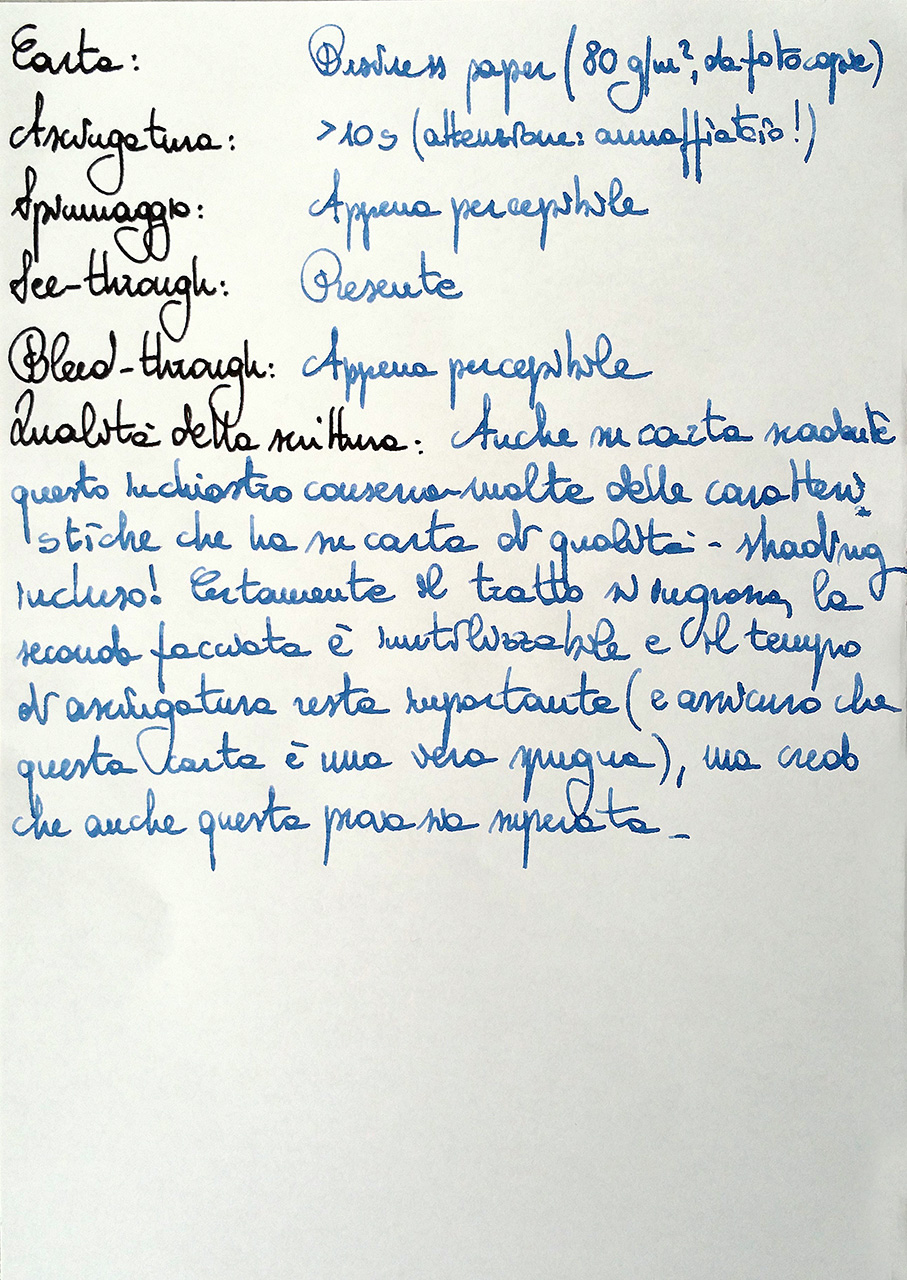 Carta: Business paper (80 g/m², da fotocopie)
Asciugatura: >10s (attenzione: annaffiatoio!)
Spiumaggio: Appena percepibile
See-through: Presente
Bleed-through: Appena percepibile
Qualità della scrittura: Anche su carta scadente
questo inchiostro conserva molte delle caratteri-
stiche che ha su carta di qualità - shading
incluso! Certamente il tratto si ingrossa, la
seconda facciata è inutilizzabile e il tempo
di asciugatura resta importante (e assicuro che
questa carta è una vera spugna), ma credo
che anche questa prova sia superata_